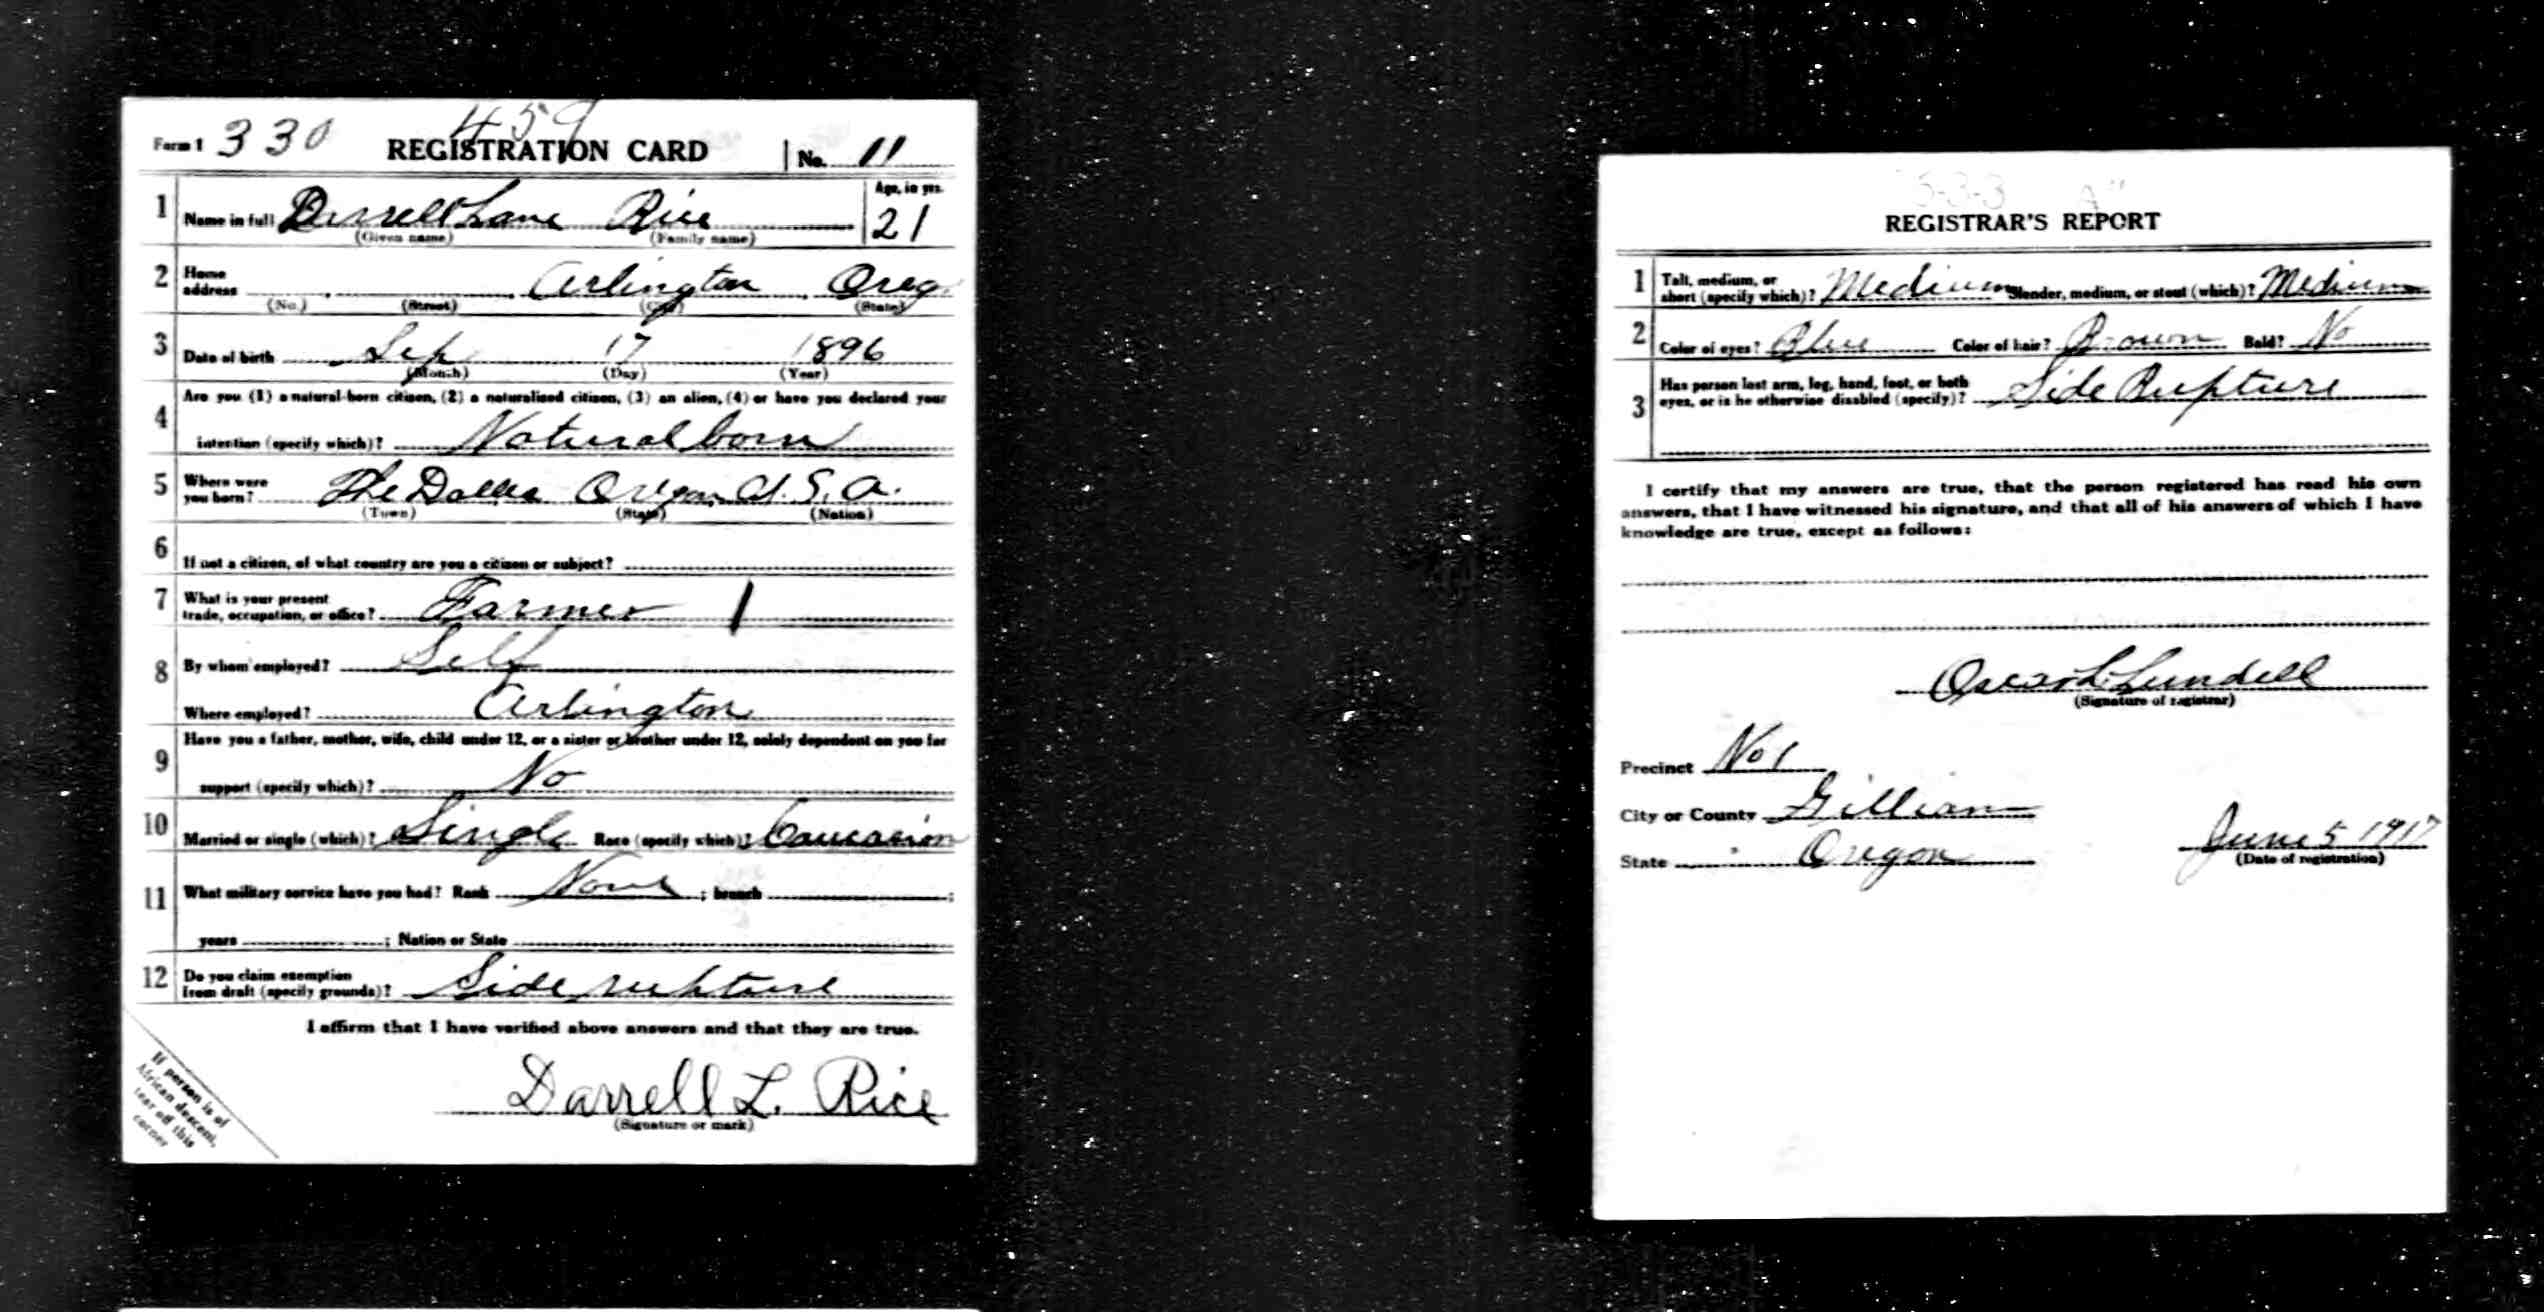 459
Form 1 330 REGISTRATION CARD No. 11
1 Name in full Darrell Lane Rice Age, in yrs. 21
(Given name) (Family name)
2 Home address Arlington Oreg.
(No.) (Street) (City) (State)
3 Date of birth Sep 17 1896
(Month) (Day) (Year)
4 Are you (1) a natural-born citizen, (2) a naturalized citizen, (3) an alien, (4) or have you declared your
intention (specify which)? Natural born
5 Where were you born? The Dalles Oregon U.S.A.
(Town) (State) (Nation)
6 If not a citizen, of what country are you a citizen or subject?
7 What is your present
trade, occupation, or office? Farmer
8 By whom employed? Self
Where employed? Arlington
9 Have you a father, mother, wife, child under 12, or a sister or brother under 12, solely dependent on you for
support (specify which)? No
10 Married or single (which)? Single Race (specify which)? Caucasion
11 What military service have you had? Rank None ; branch ;
years ; Nation or State
12 Do you claim exemption
from draft (specify grounds)? Side rupture
I affirm that I have verified above answers and that they are true.
Darrell L. Rice
(Signature or mark)
If person is of
African descent,
tear off this
corner
REGISTRAR'S REPORT
1 Tall, medium, or
short (specify which)? Medium Slender, medium, or stout (which)? Medium
2 Color of eyes? Blue Color of hair? Brown Bald? No
3 Has person lost arm, leg, hand, foot, or both
eyes, or is he otherwise disabled (specify)? Side Rupture
I certify that my answers are true, that the person registered has read his own
answers, that I have witnessed his signature, and that all of his answers of which I have
knowledge are true, except as follows:
Oscar L. Lundell
(Signature of registrar)
Precinct No 1
City or County Gilliam
State Oregon
June 5 1917
(Date of registration)